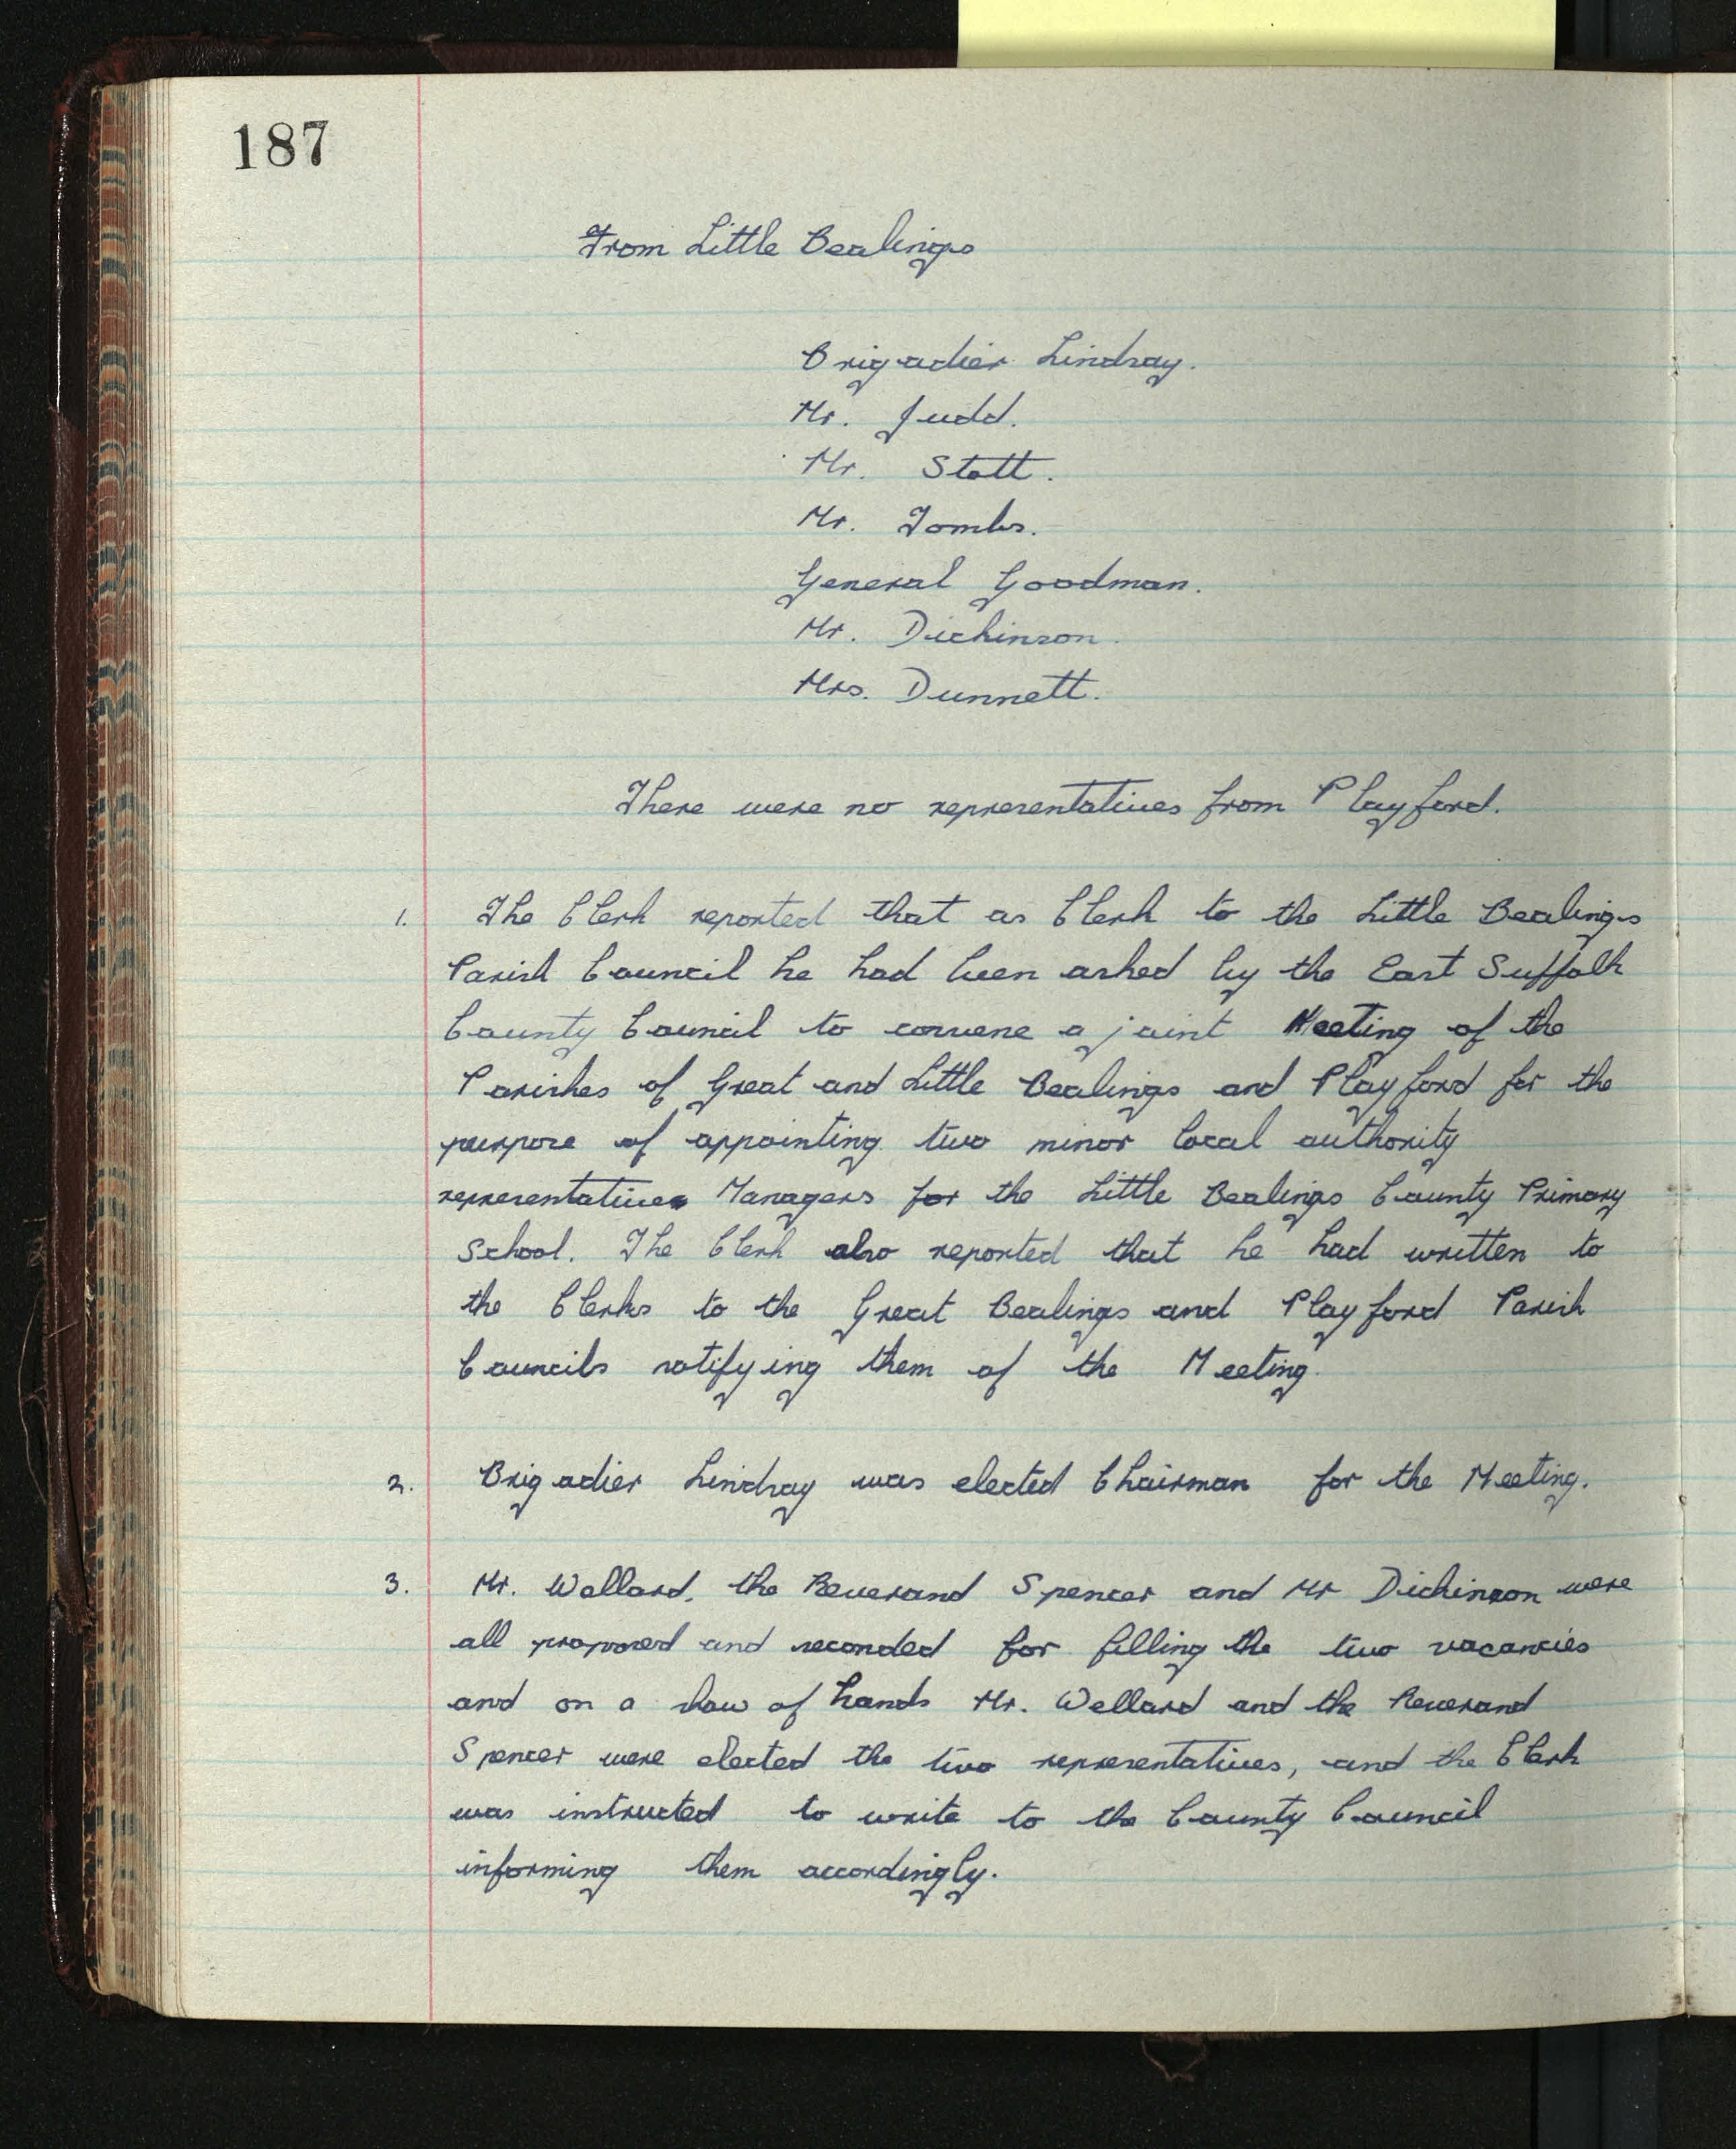 187
From Little Bealings
Brigadier Lindsay.
Mr. Judd.
Mr. Stott.
Mr. Tombs.
General Goodman.
Mr. Dickinson.
Mrs. Dunnett.
There were no representatives from Playford.
1. The Clerk reported that as Clerk to the Little Bealings
Parish Council he had been asked by the East Suffolk
County Council to convene a joint Meeting of the
Parishes of Great and Little Bealings and Playford for the
purpose of appointing two minor local authority
representatives Managers for the Little Bealings County Primary
School. The Clerk also reported that he had written to
the Clerks to the Great Bealings and Playford Parish
Councils notifying them of the Meeting.
2. Brigadier Lindsay was elected Chairman for the Meeting.
3. Mr. Wellard, the Reverand Spencer and Mr Dickinson were
all proposed and seconded for filling the two vacancies
and on a show of hands Mr. Wellard and the Reverand
Spencer were elected the two representatives, and the Clerk
was instructed to write to the County Council
informing them accordingly.